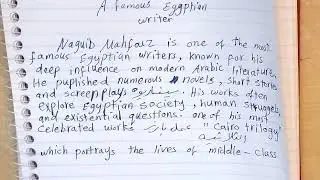 A famous Egyptian
writer
Naguib Mahfouz is one of the most
famous Egyptian writers, known for his
deep influence on modern Arabic literature,
He puplished numerous novels, short stories
and screenplays سيناريو. His works often
explore Egyptian society, human struggels
and existential questions. one of his most
celebrated works "Cairo trilogy"
which portrays the lives of middle-class